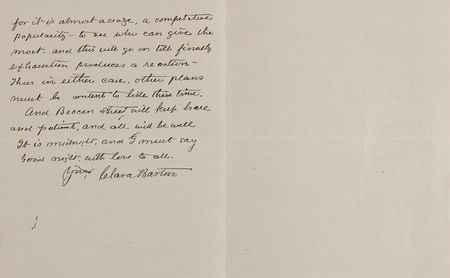 for it is almost a craze, a competitive
popularity - to see who can give the
most. and this will go on till finally
exhaustion produces a reaction -
Thus in either case, other plans
must be content to bide their time.
And Beacon street will keep brave
and patient, and all will be well
It is midnight, and I must say
Good night. with love to all.
Yours Clara Barton